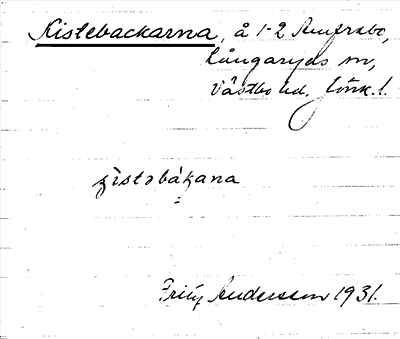 Kistebackarna, å 1-2 Ramfrabo,
Långaryds sn,
Västbo hd. Jönk. l.
ʒìstəbákana
Fritz Andersson 1931.